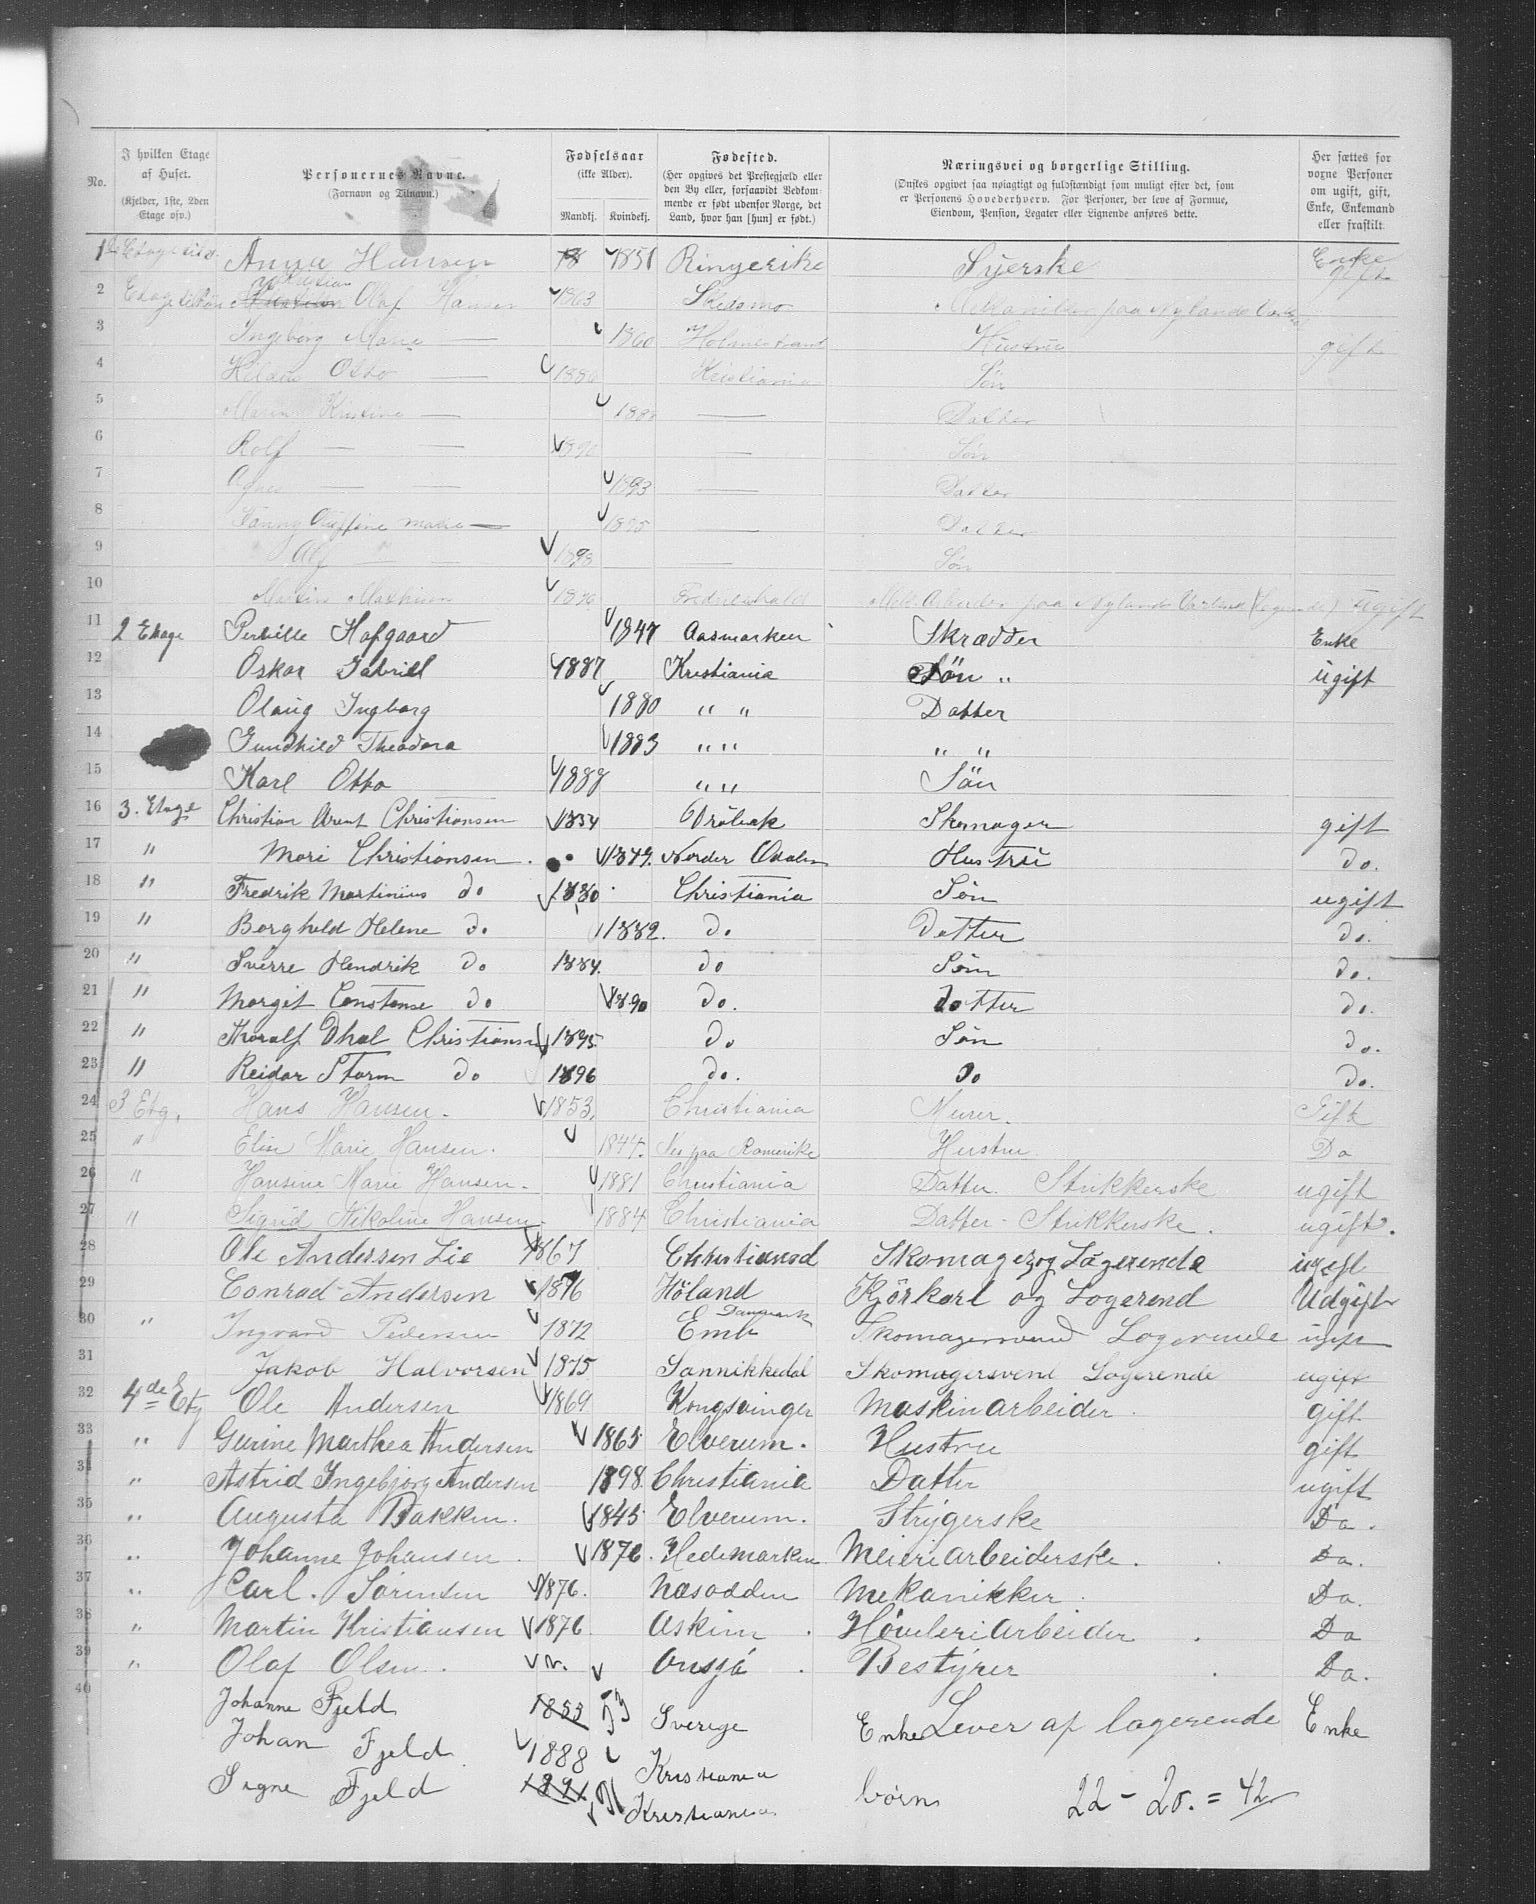 No. | I hvilken Etage af Huset. (Kjelder, 1ste, 2den Etage osv.) | Personernes Navne. (Fornavn og Tilnavn.) | Fødselsaar (ikke Alder). Mandkj. Kvindekj. | Fødested. (Her opgives det Prestegjæld eller den By eller, forsaavidt Vedkommende er født udenfor Norge, det Land, hvor han [hun] er født.) | Næringsvei og borgerlige Stilling. (Ønskes opgivet saa nøiagtigt og fuldstændigt som muligt efter det, som er Personens Hovederhverv. For Personer, der leve af Formue, Eiendom, Pension, Legater eller Lignende anføres dette. | Her sættes for voxne Personer om ugift, gift, Enke, Enkemand eller fraskilt.
1 Anna Hansen 1851 Ringerike Syerske Enke
2 Kristian Olaf Hansen 1863 Skedsmo paa Nylands gift
3 Ingeborg Marie — 1860 Holmestrand Hustru gift
4 Otto — 1886 Kristiania Søn
5 Kristine — — Datter
6 Rolf — — 1890 — Søn
7 Agnes — — 1893 — Datter
8 Fanny Marie — 1895 — Datter
9 Alf — — 1898 — Søn
10 Martin Mathisen Fredrikshald Arbeider paa Nylands (Logerende) Ugift
11 2 Etage Pernille Hofgaard 1847 Aasmarken Skrædder Enke
12 Oskar Gabriel 1887 Kristiania Søn " ugift
13 Olaug Ingborg 1880 " " Datter
14 Gundhild Theodora 1883 " " " "
15 Karl Otto 1888 " " Søn
16 3. Etage Christian Arent Christiansen 1854 Drøbak Skomager gift
17 " Mari Christiansen. 1849. Nordre Odalen Hustru do.
18 " Fredrik Martinius do 1880 Christiania Søn ugift
19 " Borghild Helene do 1882. do Datter do.
20 " Sverre Hendrik do 1884. do Søn do.
21 " Margit Constanse do 1890 do. datter do.
22 " Thoralf Dhal Christiansen 1895 do Søn do.
23 " Reidar Storm do 1896 do. do do.
24 3 Etg. Hans Hansen. 1853. Christiania Murer. Gift
25 " Elise Marie Hansen. 1844. Nes paa Romerike Hustru Do
26 " Hansine Marie Hansen. 1881 Christiania Datter. Strikkerske ugift
27 " Sigrid Nikoline Hansen. 1884 Christiania Datter - Strikkerske. ugift.
28 Ole Andersen Lie 1867 Christiansd Skomager og Logerende ugift
29 Conrad Andersen 1876 Höland Kjörkarl og Logerend Udgift
30 " Ingvard Pedersen 1872 Danmark Skomagersvend Logerende ugift
31 Jakob Halvorsen 1875 Sannikkedal Skomagersvend Logerende ugift
32 4de Etg Ole Andersen 1869 Kongsvinger Maskinarbeider gift
33 " Gurine Marthea Andersen 1865 Elverum. Hustru gift
34 " Astrid Ingebjörg Andersen 1898 Christiania Datter ugift
35 " Augusta Bakken. 1845 Elverum. Strygerske Do.
36 " Johanne Johansen. 1876. Hedemarken Meieriarbeiderske. Do.
37 " Carl. Sörensen 1876. Næsodden Mekanikker. Do.
38 " Martin Kristiansen 1876 Askim. Høvleriarbeider. Do
39 " Olaf Olsen. Onsjö. Bestyrer. Do.
40 Johanne Fjeld 1853 53 Sverige Enke Lever af logerende Enke
Johan Fjeld 1888 Kristiania
Signe Fjeld 1891 91 Kristiania börn
22 - 20. = 42